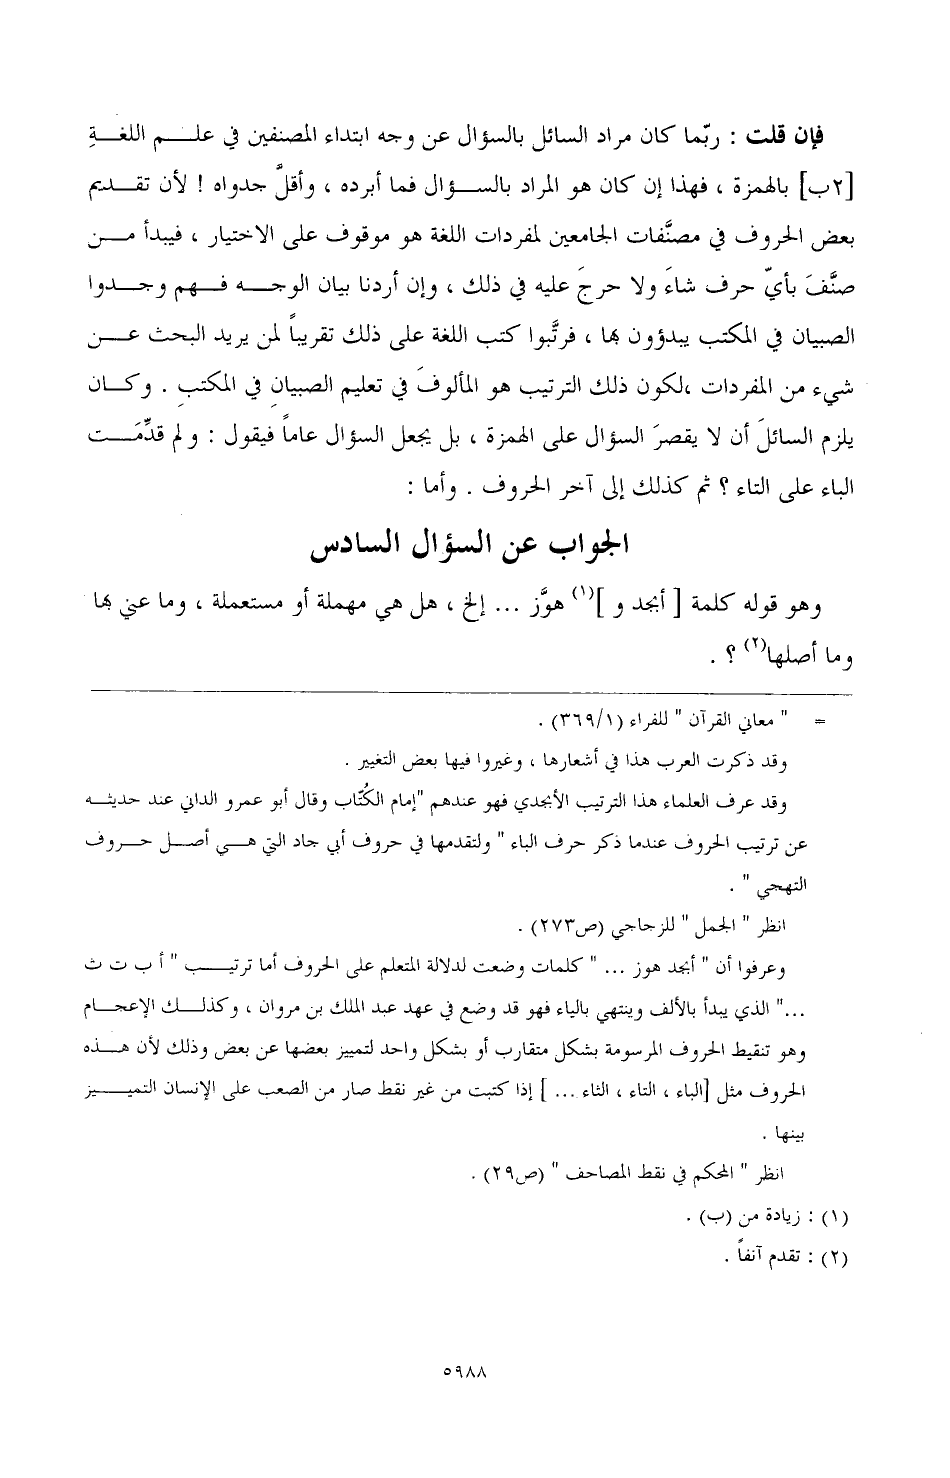 فإن قلت : ربّما كان مراد السائل بالسؤال عن وجه ابتداء المصنفين في علم اللغةِ
[٢ب] بالهمزة ، فهذا إن كان هو المراد بالسؤال فما أبرده ، وأقلَّ جدواه ! لأن تقديم
بعض الحروف في مصنَّفات الجامعين لمفردات اللغة هو موقوف على الاختيار ، فيبدأ من
صنَّفَ بأيّ حرف شاءَ ولا حرجَ عليه في ذلك ، وإن أردنا بيان الوجه فهم وجدوا
الصبيان في المكتب يبدؤون بها ، فرتَّبوا كتب اللغة على ذلك تقريباً لمن يريد البحث عن
شيء من المفردات ،لكون ذلك الترتيب هو المألوفَ في تعليم الصبيانِ في المكتبِ . وكان
يلزم السائلَ أن لا يقصرَ السؤال على الهمزة ، بل يجعل السؤال عاماً فيقول : ولم قدِّمَت
الباء على التاء ؟ ثم كذلك إلى آخر الحروف . وأما :
الجواب عن السؤال السادس
وهو قوله كلمة [ أبجد و ](١) هوَّز ... إلخ ، هل هي مهملة أو مستعملة ، وما عني بها
وما أصلها(٢) ؟ .
= " معاني القرآن " للفراء (٣٦٩/١) .
وقد ذكرت العرب هذا في أشعارها ، وغيروا فيها بعض التغيير .
وقد عرف العلماء هذا الترتيب الأبجدي فهو عندهم "إمام الكُتّاب وقال أبو عمرو الداني عند حديثه
عن ترتيب الحروف عندما ذكر حرف الباء " ولتقدمها في حروف أبي جاد التي هي أصل حروف
التهجي " .
انظر " الجمل " للزجاجي (ص٢٧٣) .
وعرفوا أن " أبجد هوز ... " كلمات وضعت لدلالة المتعلم على الحروف أما ترتيب " أ ب ت ث
..." الذي يبدأ بالألف وينتهي بالياء فهو قد وضع في عهد عبد الملك بن مروان ، وكذلك الإعجام
وهو تنقيط الحروف المرسومة بشكل متقارب أو بشكل واحد لتمييز بعضها عن بعض وذلك لأن هذه
الحروف مثل [الباء ، التاء ، الثاء ... ] إذا كتبت من غير نقط صار من الصعب على الإنسان التمييز
بينها .
انظر " المحكم في نقط المصاحف " (ص٢٩) .
(١) : زيادة من (ب) .
(٢) : تقدم آنفاً .
٥٩٨٨